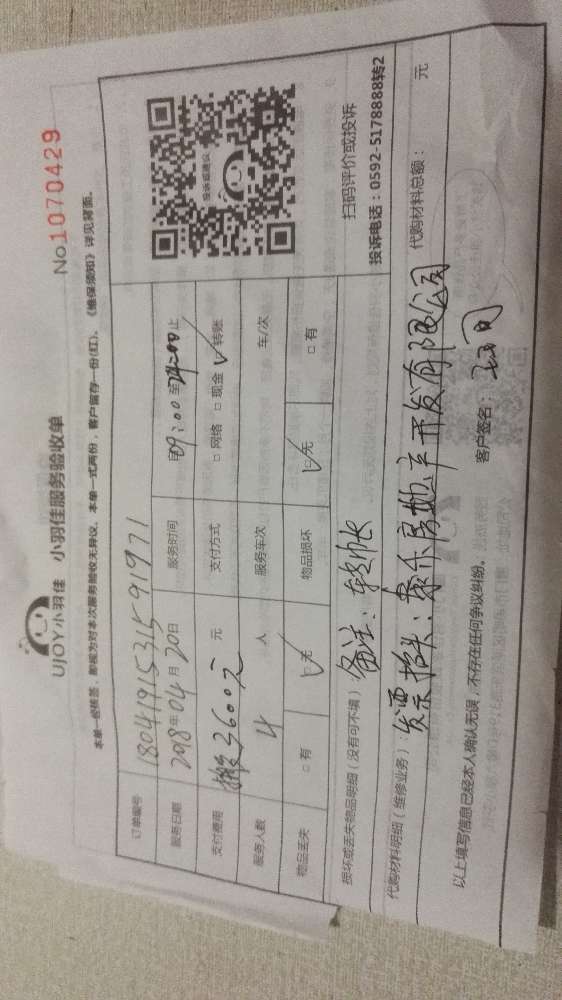 UJOY小羽佳 小羽佳服务验收单
No 1070429
本单一经核签，即视为对本次服务验收无异议，本单一式两份，客户留存一份(红)，《维保须知》详见背面。
订单编号 180419153159 1971
服务日期 2018年04月20日 服务时间 自09:00至24:00止
支付费用 搬3600元 元 支付方式 □ 网络 □ 现金 ✓转账
服务人数 4 人 服务车次 车/次
物品丢失 □ 有 ✓无 物品损坏 ✓无 □ 有
投诉或建议
扫码评价或投诉
投诉电话：0592-5178888转2
损坏或丢失物品明细（没有可不填） 备注：转帐
代购材料明细（维修业务）：发票抬头：泰乐房地产开发有限公司 代购材料总额： 元
以上填写信息已经本人确认无误，不存在任何争议纠纷。 客户签名：